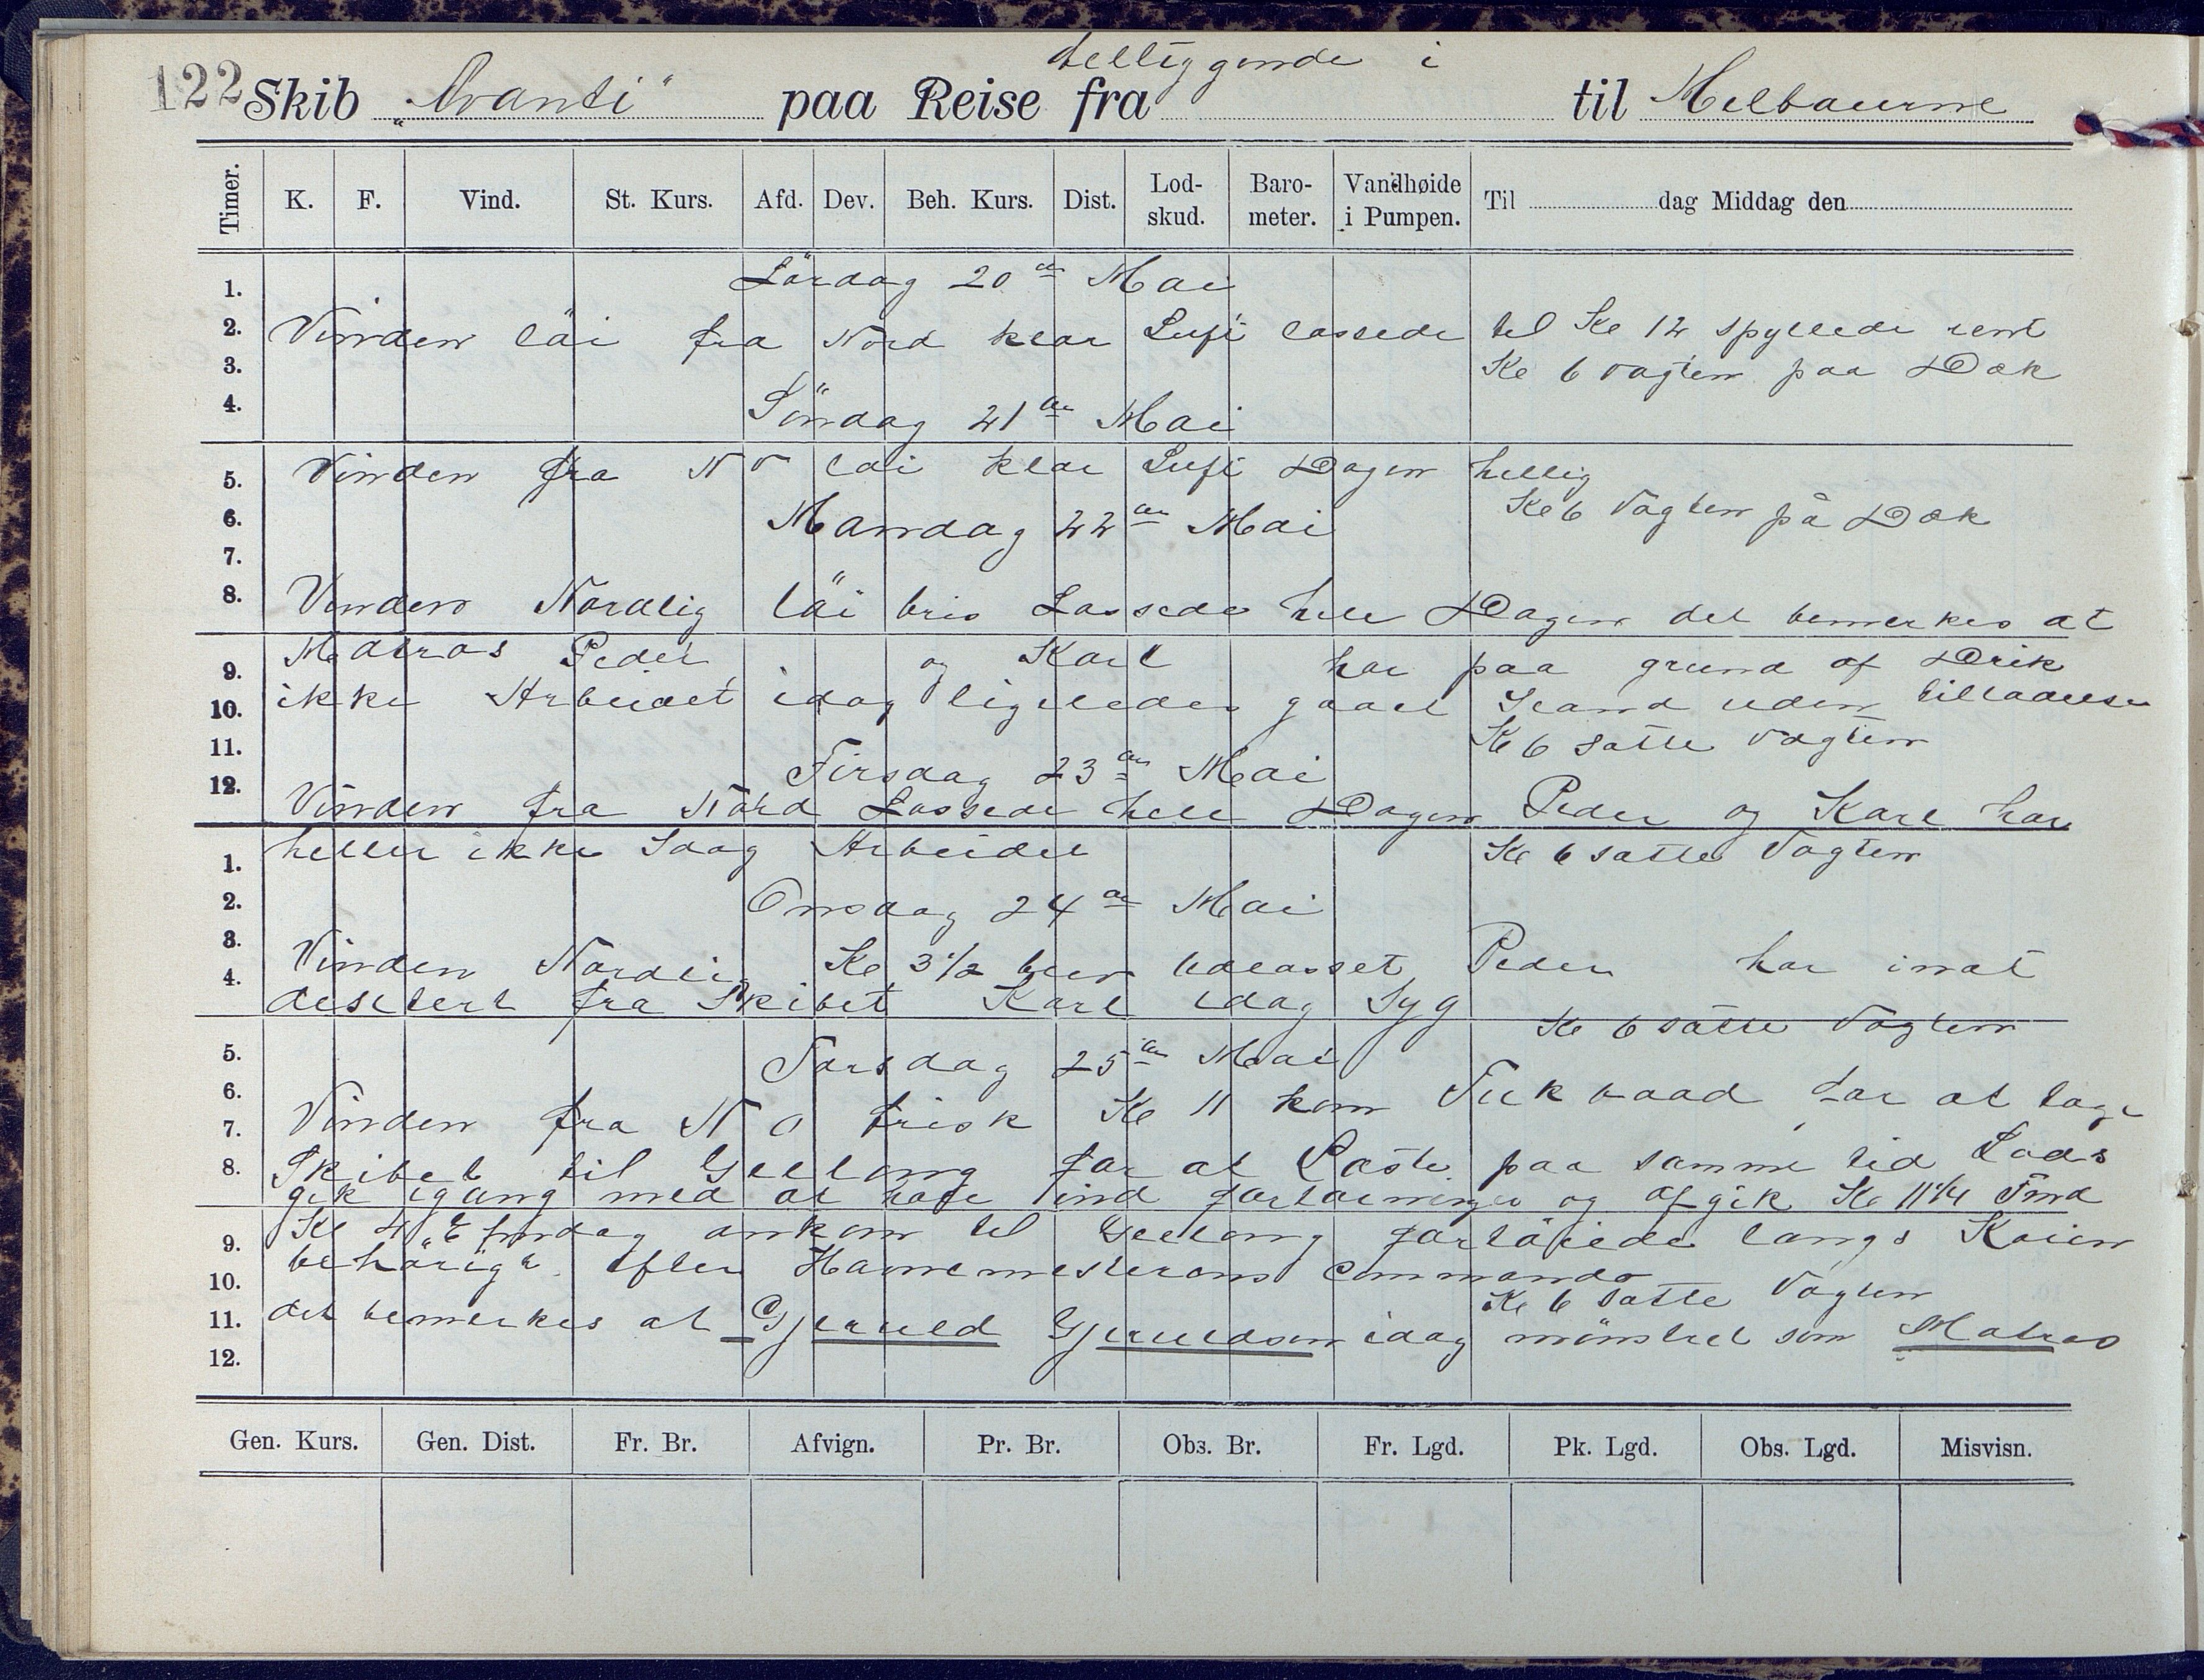 122 Skib „Avanti" paa Reise fra tilliggende i til Melbaurne
Timer. K. F. Vind. St. Kurs. Afd. Dev. Beh. Kurs. Dist. Lod-skud. Baro-meter. Vandhøide i Pumpen. Til dag Middag den
Lördag 20de Mai
Vinden löi fra Nord klar Luft lossede til Kl 12 spylede rent
Kl 6 vagten paa Dæk
Söndag 21de Mai
Vinden fra NV löi klar Luft Dagen hellig
Kl 6 Vagten på Dæk
Mandag 22de Mai
Vinden Nordlig löi bris Lossede hele Dagen det bemerkes at
Matros Peder og Karl har paa grund af Drik
ikke Arbeidet idag ligeledes gaaet Iland uden tilladelse
Kl 6 satte vagten
Tirsdag 23de Mai
Vinden fra Nord Lossede hele Dagen Peder og Karl har
heller ikke Idag Arbeidet
Kl 6 satte Vagten
Onsdag 24de Mai
Vinden Nordlig Kl 3½ blev udlosset Peder har inat
desertert fra Skibet Karl idag Syg
Kl 6 satte Vagten
Torsdag 25de Mai
Vinden fra NO frisk Kl 11 kom Tukbaad for at tage
Skibet til Geelong for at Laste paa samme tid Lods
gik igang med at hale ind fortøininger og afgik Kl 11¼ Fmd
Kl 4 Efmdag ankom til Geelong fortöiede langs Kaien
behörigt efter Havnemesterens Commando
Kl 6 satte Vagten
det bemerkes at Gjeruld Gjeruldsen idag mönstret som Matros
1.
2.
3.
4.
5.
6.
7.
8.
9.
10.
11.
12.
1.
2.
3.
4.
5.
6.
7.
8.
9.
10.
11.
12.
Gen. Kurs. Gen. Dist. Fr. Br. Afvign. Pr. Br. Obs. Br. Fr. Lgd. Pk. Lgd. Obs. Lgd. Misvisn.